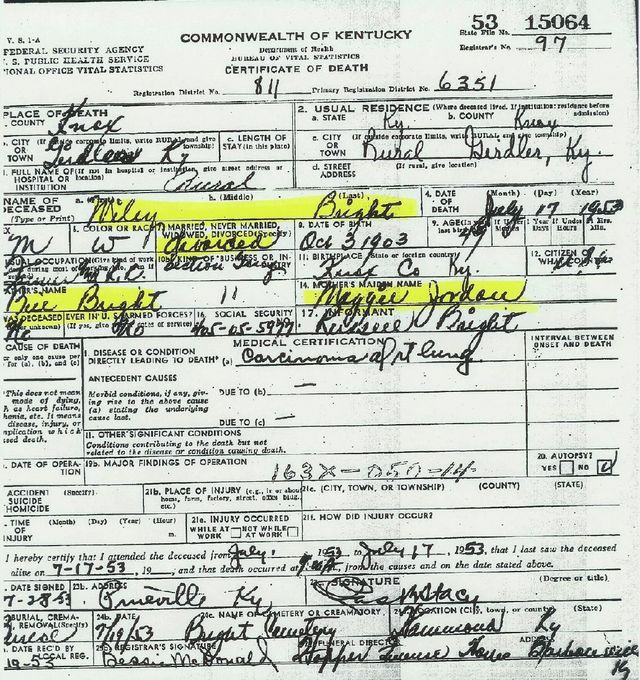 53 15064
V. S. 1-A
COMMONWEALTH OF KENTUCKY
State File No.
FEDERAL SECURITY AGENCY
Department of Health
Registrar's No. 97
U. S. PUBLIC HEALTH SERVICE
BUREAU OF VITAL STATISTICS
NATIONAL OFFICE VITAL STATISTICS
CERTIFICATE OF DEATH
Registration District No. 811 Primary Registration District No. 6351
PLACE OF DEATH
2. USUAL RESIDENCE (Where deceased lived. If institution: residence before admission)
COUNTY Knox
a. STATE Ky. b. COUNTY Knox
b. CITY (If outside corporate limits, write RURAL and give township) OR TOWN Ky
c. LENGTH OF STAY (in this place)
c. CITY (If outside corporate limits, write RURAL and give township) OR TOWN Rural Girdler, Ky.
FULL NAME OF (If not in hospital or institution, give street address or location) HOSPITAL OR INSTITUTION Rural
d. STREET ADDRESS (If rural, give location)
NAME OF DECEASED (Type or Print)
b. (Middle)
(Last)
Wiley Bright
4. DATE OF DEATH (Month) (Day) (Year) July 17 1953
M
COLOR OR RACE W
MARRIED, NEVER MARRIED, WIDOWED, DIVORCED (Specify) Divorced
8. DATE OF BIRTH Oct 3 1903
9. AGE
USUAL OCCUPATION
KIND OF BUSINESS OR IN-
Section
11. BIRTHPLACE Knox Co Ky.
12. CITIZEN OF
NAME
Bright 11
14. MOTHER'S MAIDEN NAME
Maggie Jordan
WAS DECEASED EVER IN U.S. ARMED FORCES? No
16. SOCIAL SECURITY
17. INFORMANT
Bright
MEDICAL CERTIFICATION
INTERVAL BETWEEN ONSET AND DEATH
CAUSE OF DEATH
only one cause per for (a), (b), and (c)
I. DISEASE OR CONDITION DIRECTLY LEADING TO DEATH* (a) Carcinoma of rt lung
ANTECEDENT CAUSES
*This does not mean mode of dying, as heart failure, etc. It means disease, injury, or which death.
Morbid conditions, if any, giving rise to the above cause (a) stating the underlying cause last.
DUE TO (b) —
DUE TO (c) —
II. OTHER SIGNIFICANT CONDITIONS
Conditions contributing to the death but not related to the disease or condition causing death.
DATE OF OPERATION
19b. MAJOR FINDINGS OF OPERATION
163X-050-14
20. AUTOPSY?
YES NO
ACCIDENT SUICIDE HOMICIDE (Specify)
21b. PLACE OF INJURY (e.g., in or about home, farm, factory, street, office bldg., etc.)
21c. (CITY, TOWN, OR TOWNSHIP) (COUNTY) (STATE)
TIME OF INJURY (Month) (Day) (Year) (Hour) m.
21e. INJURY OCCURRED WHILE AT WORK NOT WHILE AT WORK
21f. HOW DID INJURY OCCUR?
I hereby certify that I attended the deceased from July, 1953 to July 17, 1953, that I last saw the deceased
alive on 7-17-53, 19, and that death occurred at m., from the causes and on the date stated above.
DATE SIGNED 7-28-53
23b. ADDRESS Pineville Ky
SIGNATURE Stacy
(Degree or title)
BURIAL, CREMA-
REMOVAL (Specify) Burial
24b. DATE 7/19/53
24c. NAME OF CEMETERY OR CREMATORY Bright Cemetery
LOCATION (City, town, or county) (State) Hammond Ky
DATE REC'D BY LOCAL REG.
REGISTRAR'S SIGNATURE Bessie McDonald
FUNERAL DIRECTOR
ADDRESS
Hopper Funeral Home Barbourville Ky